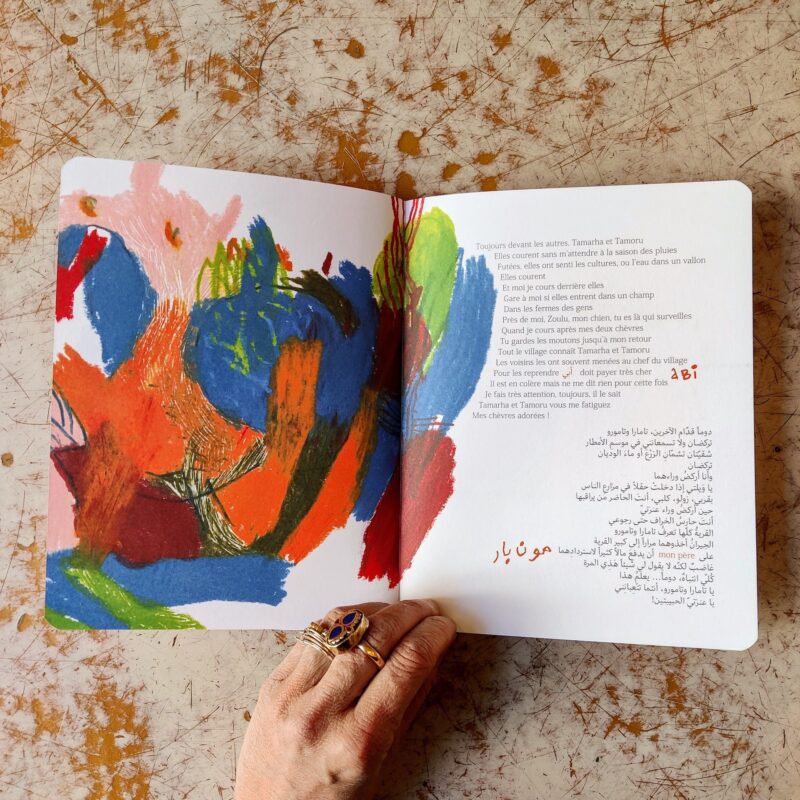 Toujours devant les autres, Tamarha et Tamoru
Elles courent sans m'attendre à la saison des pluies
Futées, elles ont senti les cultures, ou l'eau dans un vallon
Elles courent
Et moi je cours derrière elles
Gare à moi si elles entrent dans un champ
Dans les fermes des gens
Près de moi, Zoulu, mon chien, tu es là qui surveilles
Quand je cours après mes deux chèvres
Tu gardes les moutons jusqu'à mon retour
Tout le village connaît Tamarha et Tamoru
Les voisins les ont souvent menées au chef du village
Pour les reprendre أبي doit payer très cher aBi
Il est en colère mais ne me dit rien pour cette fois
Je fais très attention, toujours, il le sait
Tamarha et Tamoru vous me fatiguez
Mes chèvres adorées !
دوماً قدّام الآخرين، تامارا وتامورو
تركضان ولا تسمعانني في موسم الأمطار
شقيّتان تشمّان الزرْع أو ماءَ الوديان
تركضان
وأنا أركضُ وراءهما
يا وَيلتي إذا دخلتْ حقلاً في مزارع الناس
بقربي، زولو، كلبي، أنتَ الحاضر من يراقبها
حين أركضُ وراء عنزتيّ
أنتَ حارسُ الخراف حتى رجوعي
القريةُ كلّها تعرفُ تامارا وتامورو
الجيرانُ أخذوهما مراراً إلى كبير القرية
على mon père أن يدفعَ مالاً كثيراً لاستردادهما مون بار
غاضبٌ لكنّه لا يقول لي شيئاً هَذِي المرة
كُلّي انتباهٌ، دوماً... يعلمُ هذا
يا تامارا وتامورو، أنتما تُتعِبانِني
يا عنزتيّ الحبيبتين!